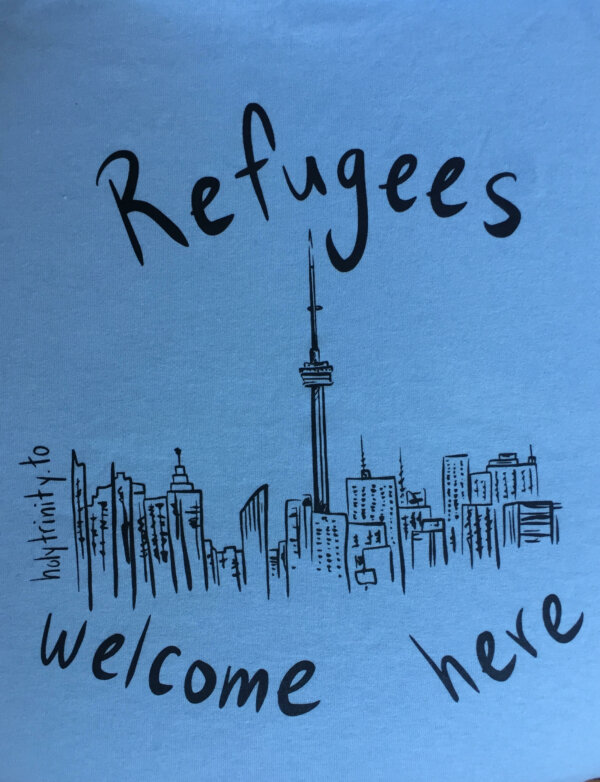 Refugees
holytrinity.to
welcome here